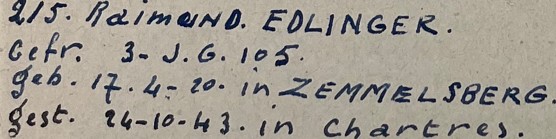 215. Raimund. EDLINGER.
Gefr. 3- J.G. 105.
geb. 17.4-20. in ZEMMELSBERG.
gest. 24-10-43. in Chartres.